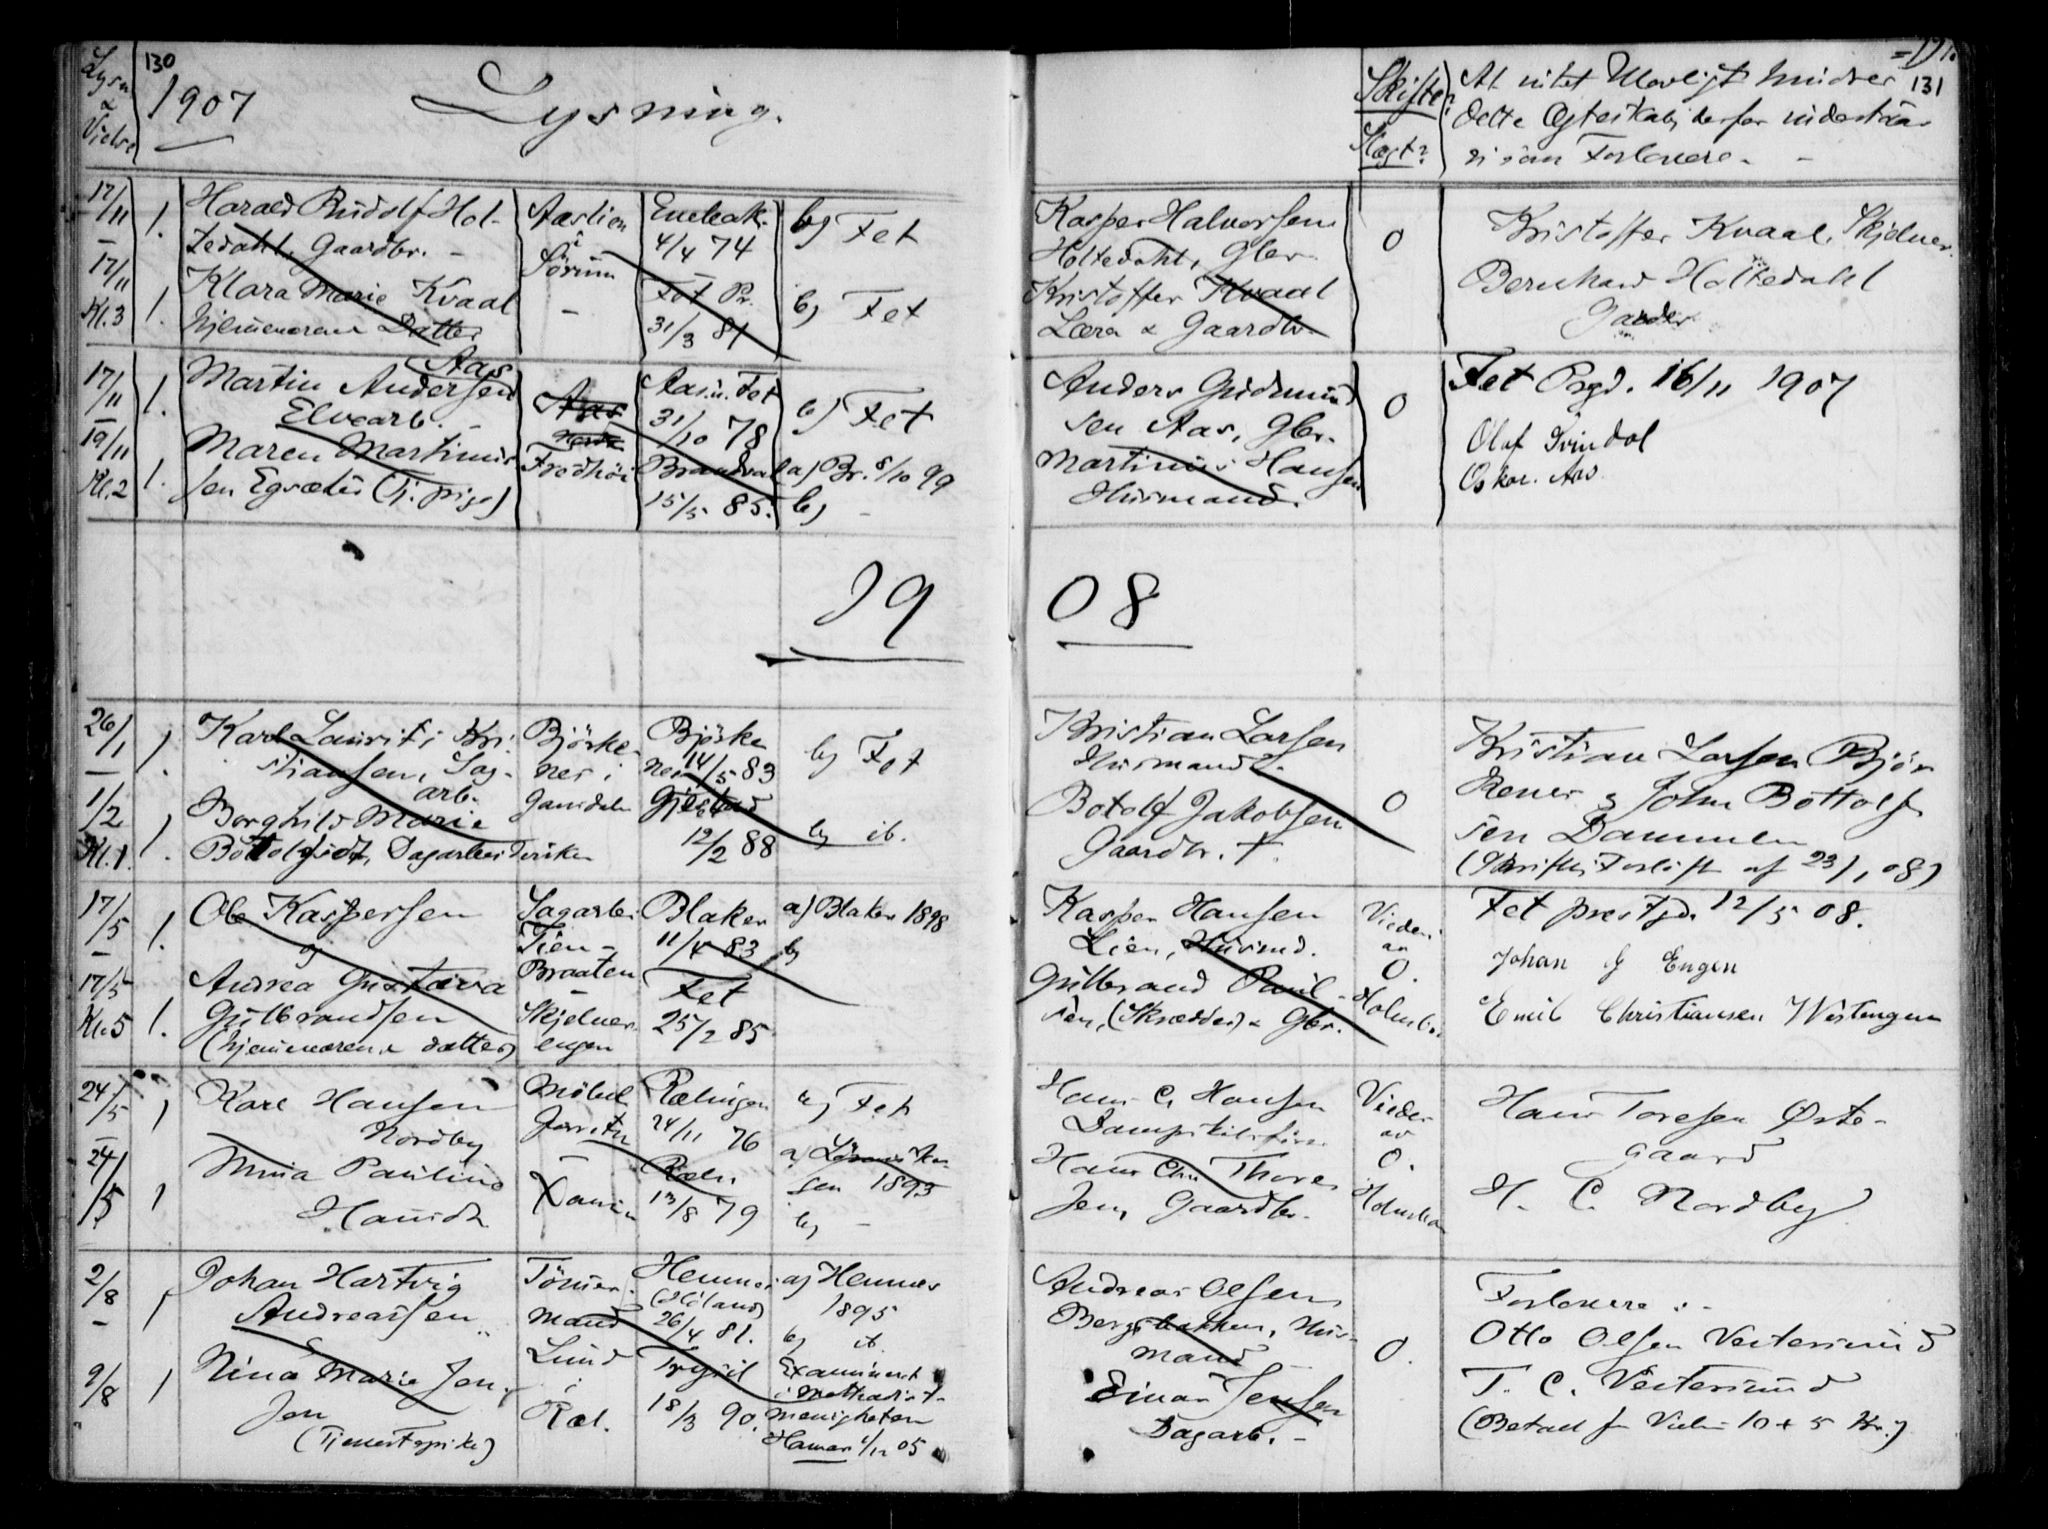 Lysn
&
Vielse
130
1907
Lysning.
Skifte?
Slægt?
At intet Ulovligt hindrer
dette Ægteskab, derfor indestaar
vi som Forlovere. -
131
17/11
-
17/11
Kl. 3
1.
1.
Harald Rudolf Hol-
tedahl, Gaardbr. -
Klara Marie Kvaal
hjemmeværen Datter
Aaslien
i
Sørum
-
4/4 74
Fet Pr.
31/3 81
b) Fet
b) Fet
Kasper Halvorsen
Holtedahl, Gbr.
Kristoffer Kvaal
Lærer & Gaardbr.
0
Kristoffer Kvaal, Skjelver.
Bernhard Holtedahl
Garder
17/11
-
19/11
Kl. 2
1.
1.
Aas
Martin Andersen
Elvearb. -
Maren Martinus
sen Egsæter (Tj.pige)
Aas
Fredhöi
Aas i Fet
31/10 78
Brandval
15/5 85.
b) Fet
a) Br. 8/10 99
b) -
Anders Gudmund
sen Aas, Gbr.
Martinus Hansen
Husmand.
0
Fet Prgd. 16/11 1907
Olaf Svindal
Oskar. Aas.
19
08
26/1
-
1/2
Kl. 1.
1.
1.
Karl Laurits Kri-
stiansen, Sag-
arb.
Borghild Marie
Bottolfsdt, Dagarbeiderske
Björke-
nes i
Gansdalen
Björke
nes 14/5 83
Gjestad
12/2 88
b) Fet
b) ib.
Kristian Larsen
Husmand.
Botolf Jakobsen
Gaardbr. †.
0
Kristian Larsen Björ
kenes & John Bottolf
sen Dammen
(Skriftl. Forlöft af 23/1 08)
17/5
-
17/5
Kl. 5
1.
1.
Ole Kaspersen
og
Andrea Gustava
Gulbrandsen
(hjemmeværende datter)
Sagarbei
Lien -
Braaten
-
Skjelver-
engen
Blaker
11/4 83
Fet
25/2 85
a) Blaker 1898
b)
Kasper Hansen
Lien, Husmd.
Gulbrand Paul-
sen, (Skrædder) & Gbr.
Viedes
av
O.
Holmboe
Fet prestgd. 12/5 08.
Johan G Engen
Emil Christiansen Westengen
24/5
-
24/5
1
1
Karl Hansen
Nordby
Mina Pauline
Hansdt.
Möbel
-
Rælingen
24/11 76
Ræl.
13/8 79
b) Fet
a)
sen 1893
b) -
Hans C. Hansen
Dampskibsförer
Hans Chr Thore
sen, Gaardbr.
Viedes
av
O.
Holmboe
Hans Toresen Øste-
gaard
H. C. Nordby
2/8
-
9/8
1
1
Johan Hartvig
Andreassen
Nina Marie Jen-
sen
(Tjenestepike)
Tömmer-
mand
Lund
i
Ræl.
Hemnes
(Höland)
26/4 81.
Trysil
18/3 90.
a) Hemnes
1895
b) ib.
Examineret
i Methodist-
menigheten
Hamar 1/12 05
Andreas Olsen
Bergsbakken, Hus-
mand
Einar Jensen
Dagarb. -
0.
Forlovere :-
Otto Olsen Vestersund
T. C. Vestersund
(Betalt for Vielse 10 + 5 Kr.)